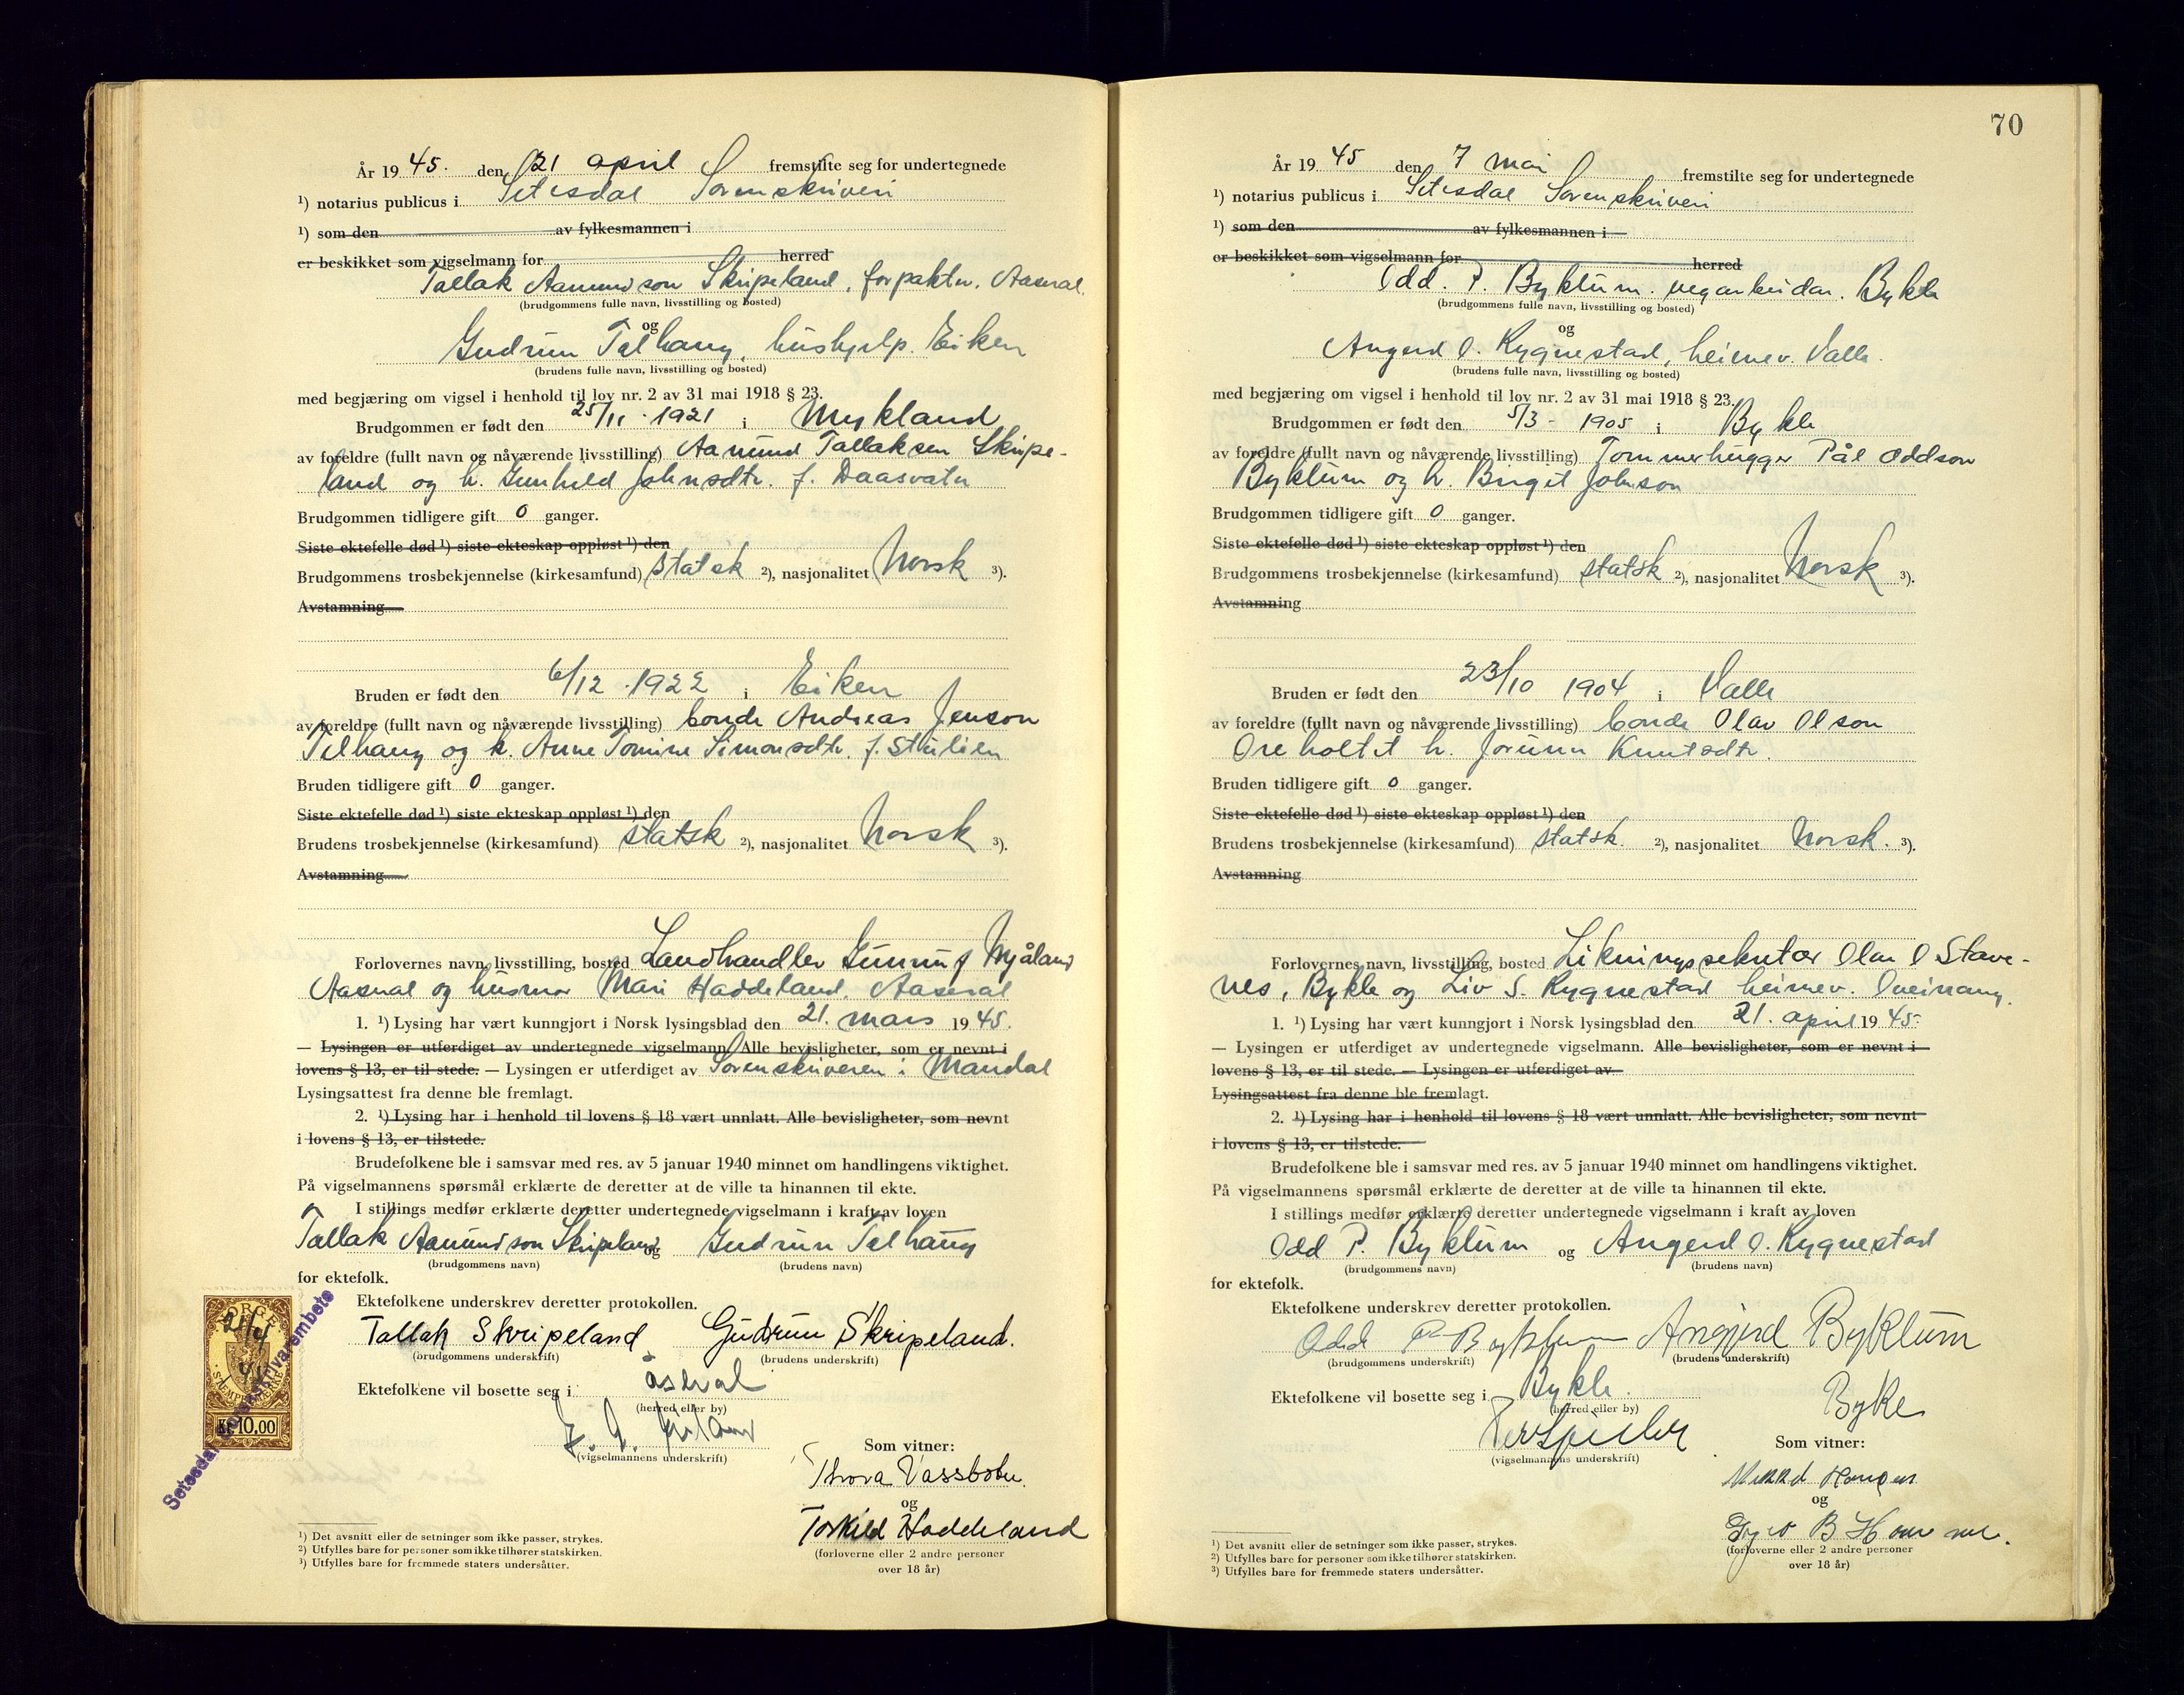 År 19 45. den 21 april fremstilte seg for undertegnede
¹) notarius publicus i Setesdal Sorenskriveri
¹) som den av fylkesmannen i
er beskikket som vigselmann for herred
Tallak Aamundson Skripeland, forpakter, Aaseral
(brudgommens fulle navn, livsstilling og bosted)
og
Gudrun Telhaug, hushjelp. Eiken
(brudens fulle navn, livsstilling og bosted)
med begjæring om vigsel i henhold til lov nr. 2 av 31 mai 1918 § 23.
Brudgommen er født den 25/11 . 1921 i Mykland
av foreldre (fullt navn og nåværende livsstilling) Aamund Tallaksen Skripe-
land og h. Gunhild Johnsdtr. f. Daasvatn
Brudgommen tidligere gift 0 ganger.
Siste ektefelle død ¹) siste ekteskap oppløst ¹) den
Brudgommens trosbekjennelse (kirkesamfund) statsk ²), nasjonalitet Norsk ³).
Avstamning
Bruden er født den 6/12 . 1922 i Eiken
av foreldre (fullt navn og nåværende livsstilling) bonde Andreas Jenson
Telhaug og h. Anne Tomine Simonsdtr. f.
Bruden tidligere gift 0 ganger.
Siste ektefelle død ¹) siste ekteskap oppløst ¹) den
Brudens trosbekjennelse (kirkesamfund) statsk ²), nasjonalitet Norsk ³).
Avstamning
Forlovernes navn, livsstilling, bosted Landhandler Gunnuf Mjåland
Aaseral og husmor Mari Haddeland, Aaseral
1. ¹) Lysing har vært kunngjort i Norsk lysingsblad den 21. mars 19 45.
— Lysingen er utferdiget av undertegnede vigselmann. Alle bevisligheter, som er nevnt i
lovens § 13, er til stede. — Lysingen er utferdiget av Sorenskriveren i Mandal
Lysingsattest fra denne ble fremlagt.
2. ¹) Lysing har i henhold til lovens § 18 vært unnlatt. Alle bevisligheter, som nevnt
i lovens § 13, er tilstede.
Brudefolkene ble i samsvar med res. av 5 januar 1940 minnet om handlingens viktighet.
På vigselmannens spørsmål erklærte de deretter at de ville ta hinannen til ekte.
I stillings medfør erklærte deretter undertegnede vigselmann i kraft av loven
Tallak Aamundson Skripeland og Gudrun Telhaug
(brudgommens navn) (brudens navn)
for ektefolk.
Ektefolkene underskrev deretter protokollen.
Tallak Skripeland Gudrun Skripeland.
(brudgommens underskrift) (brudens underskrift)
Ektefolkene vil bosette seg i åseral
(herred eller by)
(vigselmannens underskrift)
Som vitner:
Thora Vassbotn
og
Torkild Haddeland
(forloverne eller 2 andre personer
over 18 år)
NORGE
21/4
STEMPELMERKE
Kr. 10.00
¹) Det avsnitt eller de setninger som ikke passer, strykes.
²) Utfylles bare for personer som ikke tilhører statskirken.
³) Utfylles bare for fremmede staters undersåtter.
70
År 19 45 den 7 mai fremstilte seg for undertegnede
¹) notarius publicus i Setesdal Sorenskriveri
¹) som den av fylkesmannen i
er beskikket som vigselmann for herred
Odd. P. Byklum. vegarbeidar. Bykle
(brudgommens fulle navn, livsstilling og bosted)
og
Angerd O. Rygnestad, heimev. Valle.
(brudens fulle navn, livsstilling og bosted)
med begjæring om vigsel i henhold til lov nr. 2 av 31 mai 1918 § 23.
Brudgommen er født den 5/3 - 1905 i Bykle
av foreldre (fullt navn og nåværende livsstilling) Tommerhugger Pål Oddson
Byklum og h. Birgit Johnson
Brudgommen tidligere gift 0 ganger.
Siste ektefelle død ¹) siste ekteskap oppløst ¹) den
Brudgommens trosbekjennelse (kirkesamfund) statsk ²), nasjonalitet Norsk ³).
Avstamning
Bruden er født den 23/10 1904 i Valle
av foreldre (fullt navn og nåværende livsstilling) bonde Olav Olson
Oreholtet h. Jorunn Knutsdtr.
Bruden tidligere gift 0 ganger.
Siste ektefelle død ¹) siste ekteskap oppløst ¹) den
Brudens trosbekjennelse (kirkesamfund) statsk. ²), nasjonalitet Norsk. ³).
Avstamning
Forlovernes navn, livsstilling, bosted Likningssekretær Olav O Stave-
nes, Bykle og Liv S. Rygnestad heimev.
1. ¹) Lysing har vært kunngjort i Norsk lysingsblad den 21. april 19 45.
— Lysingen er utferdiget av undertegnede vigselmann. Alle bevisligheter, som er nevnt i
lovens § 13, er til stede. — Lysingen er utferdiget av
Lysingsattest fra denne ble fremlagt.
2. ¹) Lysing har i henhold til lovens § 18 vært unnlatt. Alle bevisligheter, som nevnt
i lovens § 13, er tilstede.
Brudefolkene ble i samsvar med res. av 5 januar 1940 minnet om handlingens viktighet.
På vigselmannens spørsmål erklærte de deretter at de ville ta hinannen til ekte.
I stillings medfør erklærte deretter undertegnede vigselmann i kraft av loven
Odd P. Byklum og Angerd O. Rygnestad
(brudgommens navn) (brudens navn)
for ektefolk.
Ektefolkene underskrev deretter protokollen.
Odd P Byklum Angjerd Byklum
(brudgommens underskrift) (brudens underskrift)
Ektefolkene vil bosette seg i Bykle. Bykle
(herred eller by)
(vigselmannens underskrift)
Som vitner:
og
(forloverne eller 2 andre personer
over 18 år)
¹) Det avsnitt eller de setninger som ikke passer, strykes.
²) Utfylles bare for personer som ikke tilhører statskirken.
³) Utfylles bare for fremmede staters undersåtter.